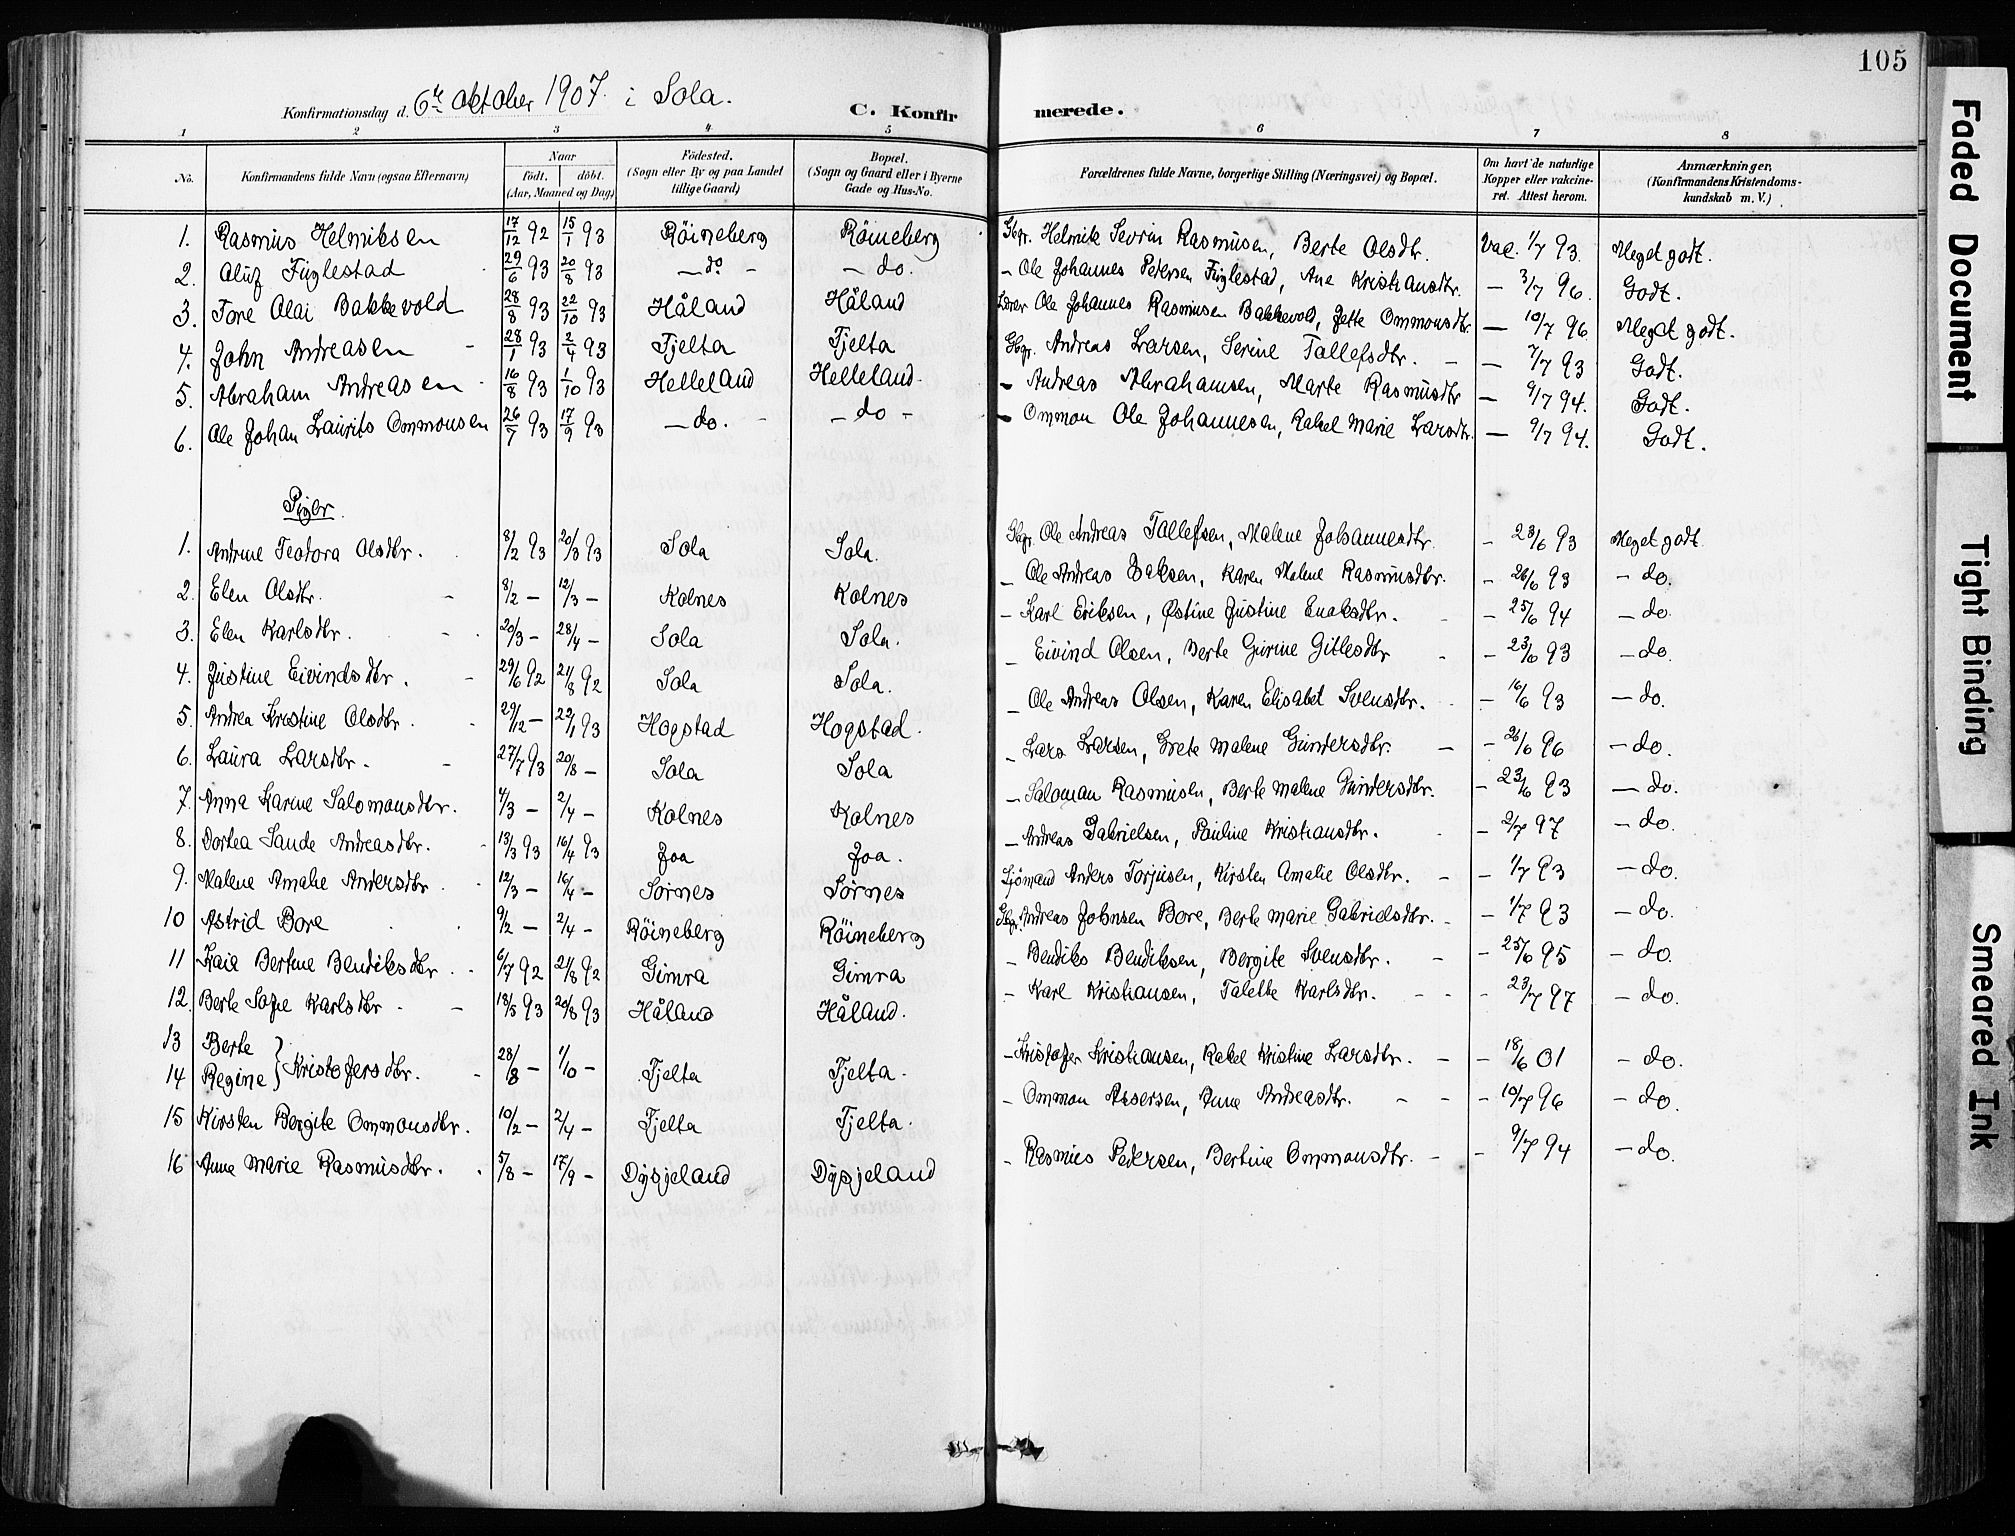 105
Konfirmationsdag d. 6te oktober 1907. i Sola.
C. Konfirmerede.
1 2 3 4 5 6 7 8
No. | Konfirmandens fulde Navn (ogsaa Efternavn) | Naar födt. döbt. (Aar, Maaned og Dag) | Födested. (Sogn eller By og paa Landet tillige Gaard) | Bopæl. (Sogn og Gaard eller i Byerne Gade og Hus-No. | Forældrenes fulde Navne, borgerlige Stilling (Næringsvei) og Bopæl. | Om havt de naturlige Kopper eller vakcineret. Attest herom. | Anmærkninger, (Konfirmandens Kristendomskundskab m. V.)
1. Rasmus Helmiksen 17/12 92 15/1 93 Röineberg Röineberg Gbgr. Helmik Sevrin Rasmusen, Berte Olsdtr. Vac. 1/7 93. Meget godt.
2. Oluf Fuglestad 29/6 93 20/8 93 — do. — — do. — Ole Johannes Petersen Fuglestad, Ane Kristiansdtr. — 3/7 96. Godt.
3. Tore Olai Bakkevold 28/8 93 22/10 93 Håland Håland Lærer Ole Johannes Rasmusen Bakkevold, Jette Ommonsdtr. — 10/7 96. Meget godt.
4. John Andreasen 28/1 93 2/4 93 Tjelta Tjelta Gbgr. Andreas Larsen, Serine Tallefsdtr. — 7/7 93 Godt.
5. Abraham Andreasen 16/8 93 1/10 93 Helleland Helleland. — Andreas Abrahamsen, Marte Rasmusdtr — 9/7 94. Godt.
6. Ole Johan Laurits Ommonsen 26/7 93 17/9 93 — do. — — do — — Ommon Ole Johannesen, Rakel Marie Larsdtr. — 9/7 94. Godt.
Piger.
1. Andrine Teodora Olsdtr. 8/2 93 20/3 93 Sola Sola. Gbgr. Ole Andreas Tallefsen, Malene Johannesdtr. — 23/6 93 Meget godt
2. Elen Olsdtr. 8/2 — 12/3 — Kolnes Kolnes — Ole Andreas Isaksen, Karen Malene Rasmusdtr. — 26/6 93 — do.
3. Elen Karlsdtr. 20/3 — 28/4 — Sola Sola. — Karl Eriksen, Østine Justine Enoksdtr. — 25/6 94 — do
4. Justine Eivindsdtr. 29/6 92 21/8 92 Sola Sola. — Eivind Olsen, Berte Gurine Gitlesdtr — 23/6 93 — do.
5. Andrea Kristine Olsdtr. 29/12 — 22/1 93 Hogstad Hogstad. — Ole Andreas Olsen, Karen Elisabet Svensdtr. — 16/6 93 — do.
6. Laura Larsdtr. 27/7 93 20/8 — Sola Sola — Lars Larsen, Grete Malene Gundersdtr. — 26/6 96 — do.
7. Anna Karine Salomonsdtr. 4/3 — 2/4 — Kolnes Kolnes — Saloman Rasmusen, Berte Malene Gundersdtr. — 23/6 93 — do.
8. Dortea Sande Andreasdtr. 13/3 93 16/4 93 Joa Joa. — Andreas Gabrielsen, Pauline Kristiansdtr. — 2/7 97 — do.
9. Malene Amalie Andersdtr. 12/3 — 16/4 — Sörnes Sörnes Sjömand Anders Torjusen, Kirsten Amalie Olsdtr. — 1/7 93 — do.
10 Astrid Bore 9/2 — 2/4 — Röineberg Röineberg Gbgr. Andreas Johnsen Bore, Berte Marie Gabrielsdtr. — 1/7 93 — do.
11 Kaie Bertine Bendiksdtr. 6/7 92 21/8 92 Gimra Gimra — Bendiks Bendiksen, Bergite Svensdtr. — 25/6 95 — do.
12. Berte Sofie Karlsdtr 18/5 93 20/8 93 Håland Håland. — Karl Kristiansen, Talette Karlsdtr. — 23/7 97 — do.
13 Berte
14 Regine } Kristofersdtr. 28/8 — 1/10 — Tjelta Tjelta. — Kristofer Kristiansen, Rakel Kristine Larsdtr. — 18/6 01 — do.
15 Kirsten Bergite Ommonsdtr. 10/2 — 2/4 — Tjelta Tjelta. — Ommon Assersen, Anna Andreasdtr. — 10/7 96 — do.
16 Anna Marie Rasmusdtr. 5/8 — 17/9 — Dysjeland Dysjeland — Rasmus Pedersen, Bertine Ommonsdtr. — 9/7 94 — do.
Faded Document
Tight Binding
Smeared Ink